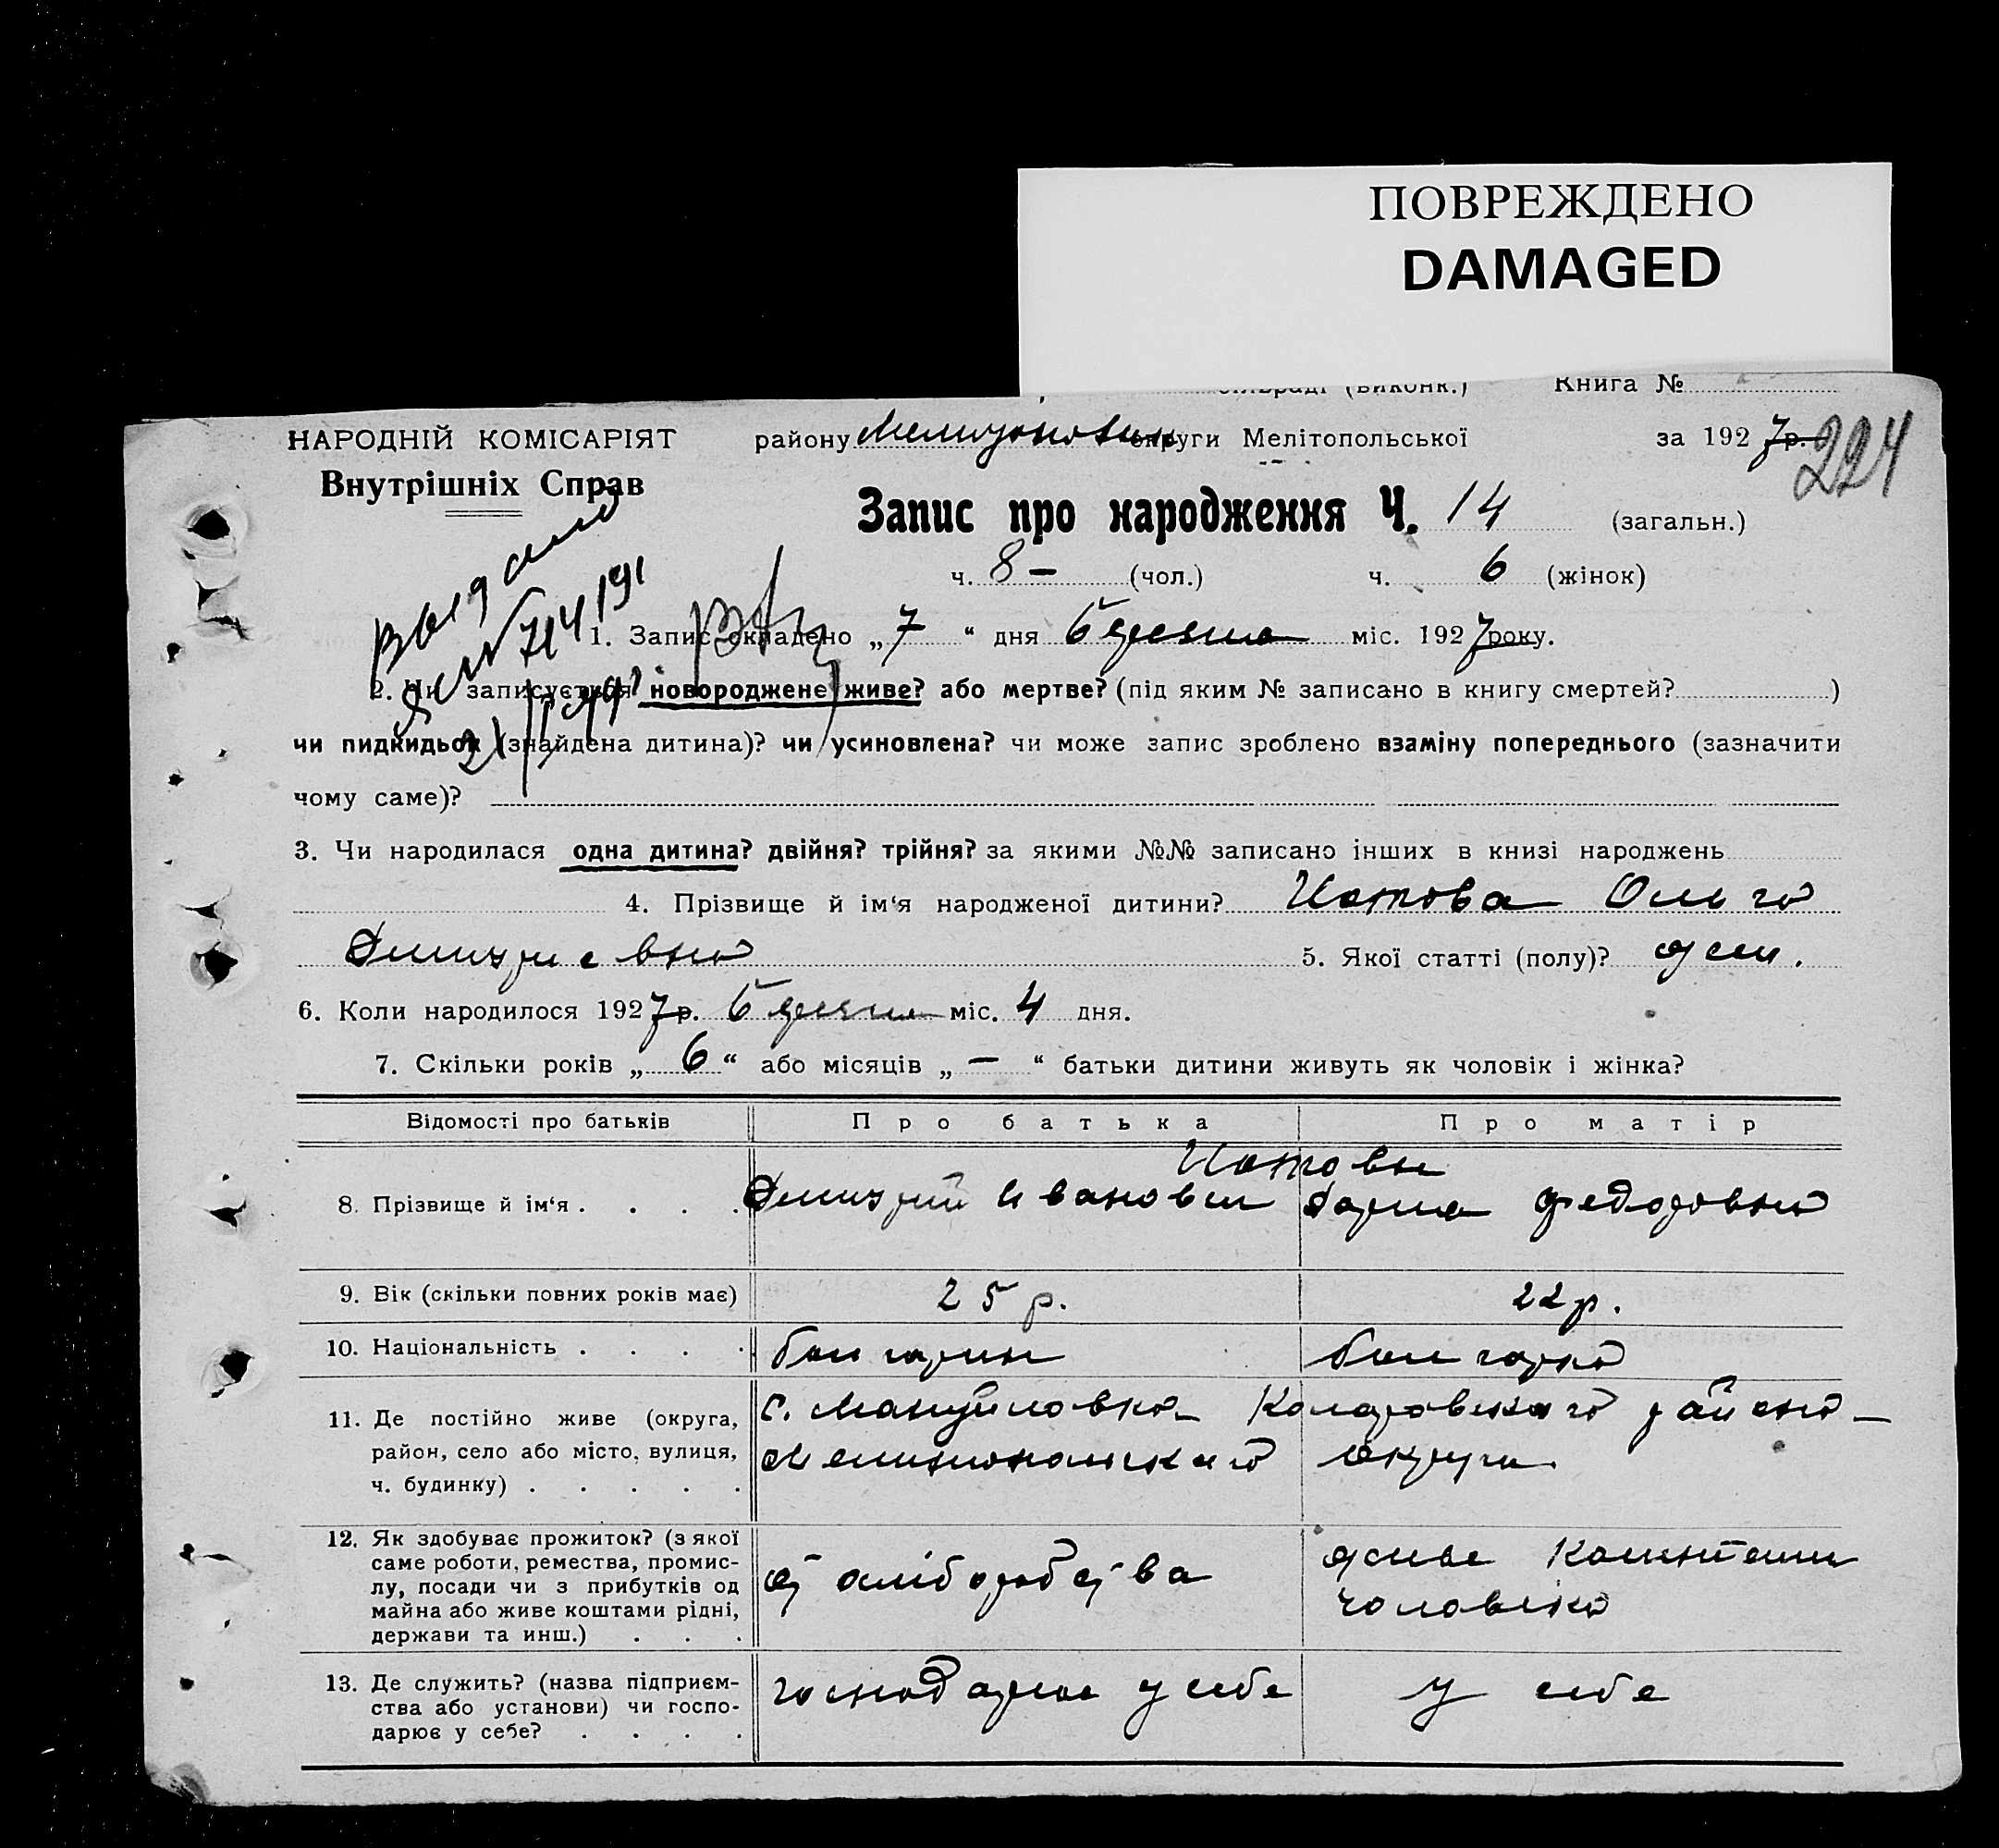 ПОВРЕЖДЕНО
DAMAGED
сільраді (виконк.) Книга №
НАРОДНІЙ КОМІСАРІЯТ району округи Мелітопольської за 1927р. 224
Внутрішніх Справ
Запис про народження Ч. 14 (загальн.)
ч. 8 — (чол.) ч. 6 (жінок)
1. Запис складено „7“ дня березня міс. 1927 року.
2. Чи записується? новороджене живе? або мертве? (під яким № записано в книгу смертей? )
чи пидкидьок (знайдена дитина)? чи усиновлена? чи може запис зроблено взаміну попереднього (зазначити
чому саме)?
3. Чи народилася одна дитина? двійня? трійня? за якими №№ записано інших в книзі народжень
4. Прізвище й ім‘я народженої дитини? Ольга
Дмитриевна 5. Якої статті (полу)? жен.
6. Коли народилося 1927р. березня міс. 4 дня.
7. Скільки років „6“ або місяців „—“ батьки дитини живуть як чоловік і жінка?
Відомості про батьків Про батька Про матір
8. Прізвище й ім‘я . . . . Дмитрий Иванович Дарья Федоровна
9. Вік (скільки повних років має) 25 р. 22 р.
10. Національність . . . . болгарин болгарка
11. Де постійно живе (округа, с. Мануйловка Коларовского района
район, село або місто, вулиця, Мелитопольского округи
ч. будинку) . . . . .
12. Як здобуває прожиток? (з якої
саме роботи, ремества, промис-
лу, посади чи з прибутків од
майна або живе коштами рідні, чоловіка
держави та инш.) . . .
13. Де служить? (назва підприєм- господарює у себе у себе
ства або установи) чи госпо-
дарює у себе? . . . .